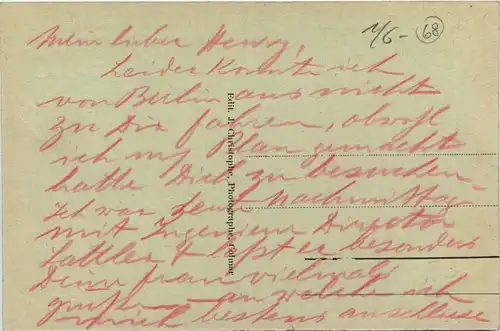 1/6- 68
Mein lieber Henry,
Leider konnte ich
von Berlin aus nicht
zu Dir fahren, obwohl
ich mir Plan gemacht
hatte Dich zu besuchen.
Ich war heute Nachmittag
mit Ingenieur Director
Sattler & lässt er besonders
Deine Frau vielmals
grüßen - an welche ich
mich bestens anschliesse
Edit. J. Christophe, Photographe, Colmar